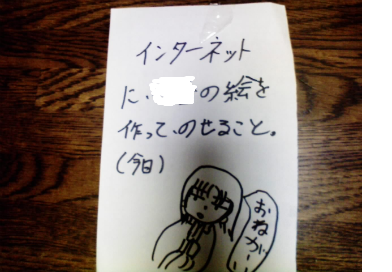 インターネット
に、の絵を
作って、のせること。
(今日)
おねがーい